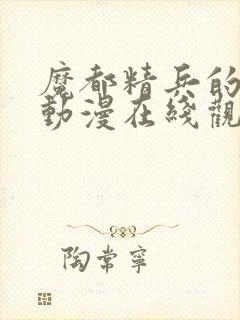 魔都精兵的
動漫在綫觀
陶常寧